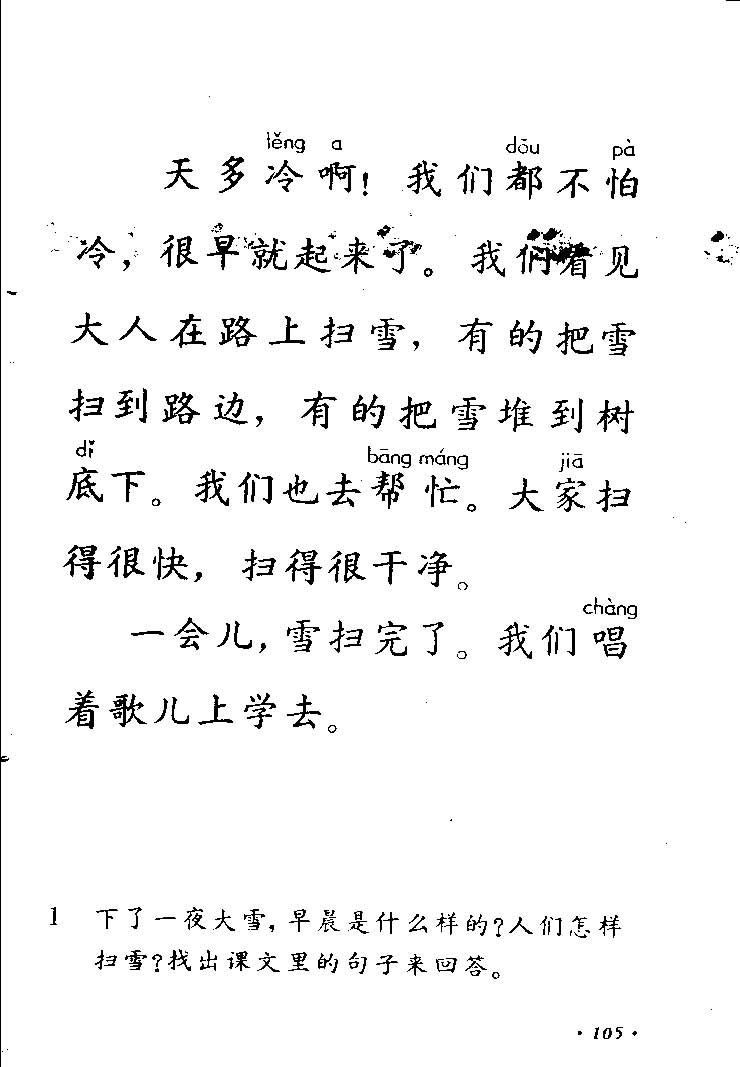 lěng a dōu pà
天多冷啊！我们都不怕
冷，很早就起来了。我们看见
大人在路上扫雪，有的把雪
扫到路边，有的把雪堆到树
dǐ bāng máng jiā
底下。我们也去帮忙。大家扫
得很快，扫得很干净。
chàng
一会儿，雪扫完了。我们唱
着歌儿上学去。
1 下了一夜大雪，早晨是什么样的？人们怎样
扫雪？找出课文里的句子来回答。
·105·